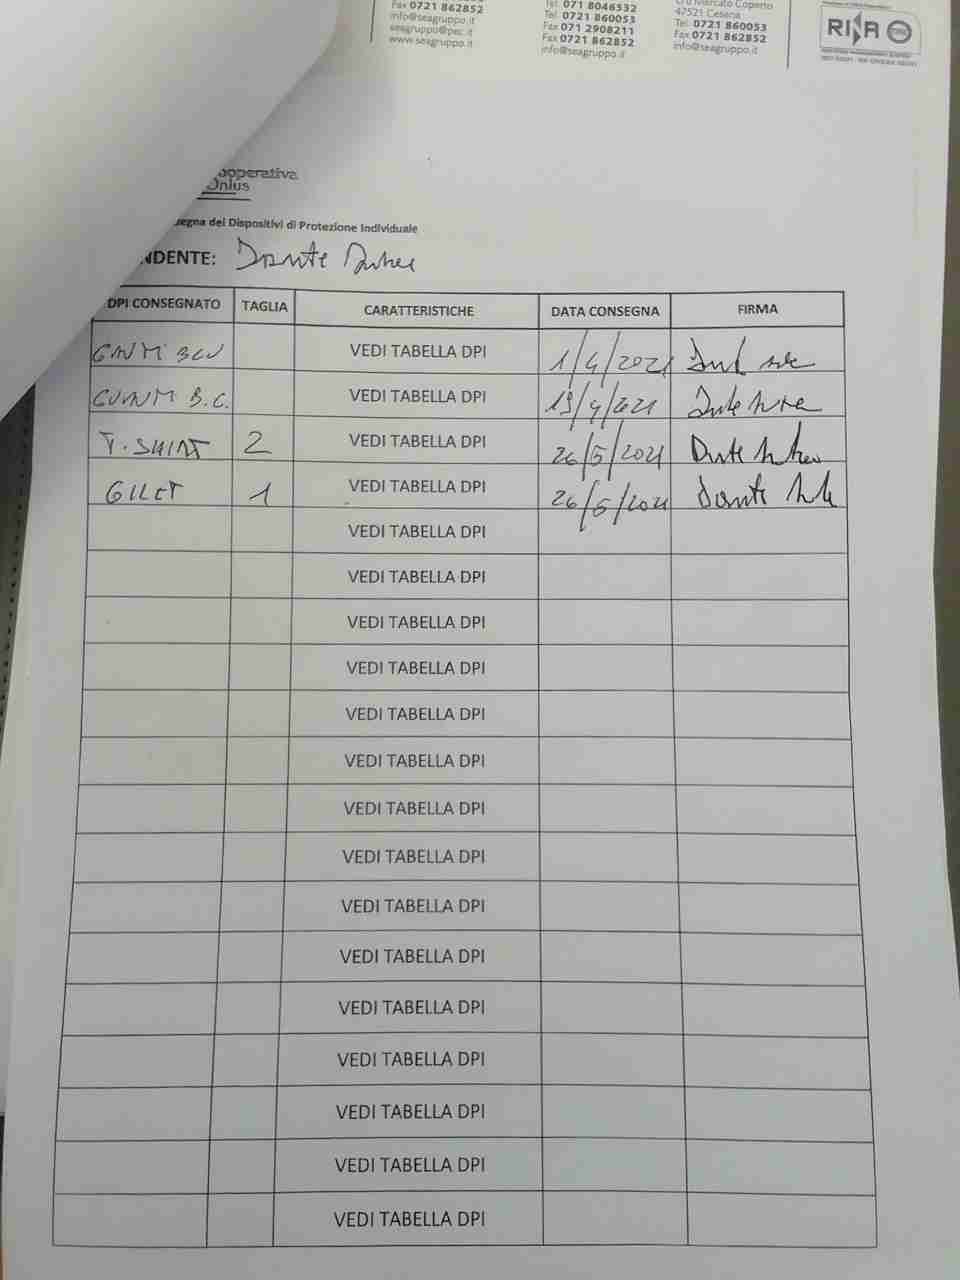 Fax 0721 862852
info@seagruppo.it
seagruppo@pec.it
www.seagruppo.it
Tel. 071 8046532
Tel. 0721 860053
Fax 071 2908211
Fax 0721 862852
info@seagruppo.it
Mercato Coperto
47521 Cesena
Tel. 0721 860053
Fax 0721 862852
info@seagruppo.it
RINA
ooperativa
Onlus
segna dei Dispositivi di Protezione Individuale
NDENTE: Dante
DPI CONSEGNATO TAGLIA CARATTERISTICHE DATA CONSEGNA FIRMA
VEDI TABELLA DPI 1/4/2021
B.C. VEDI TABELLA DPI 19/4/2021
T. SHIRT 2 VEDI TABELLA DPI 26/5/2021 Dante
GILET 1 VEDI TABELLA DPI 26/5/2021 Dante
VEDI TABELLA DPI
VEDI TABELLA DPI
VEDI TABELLA DPI
VEDI TABELLA DPI
VEDI TABELLA DPI
VEDI TABELLA DPI
VEDI TABELLA DPI
VEDI TABELLA DPI
VEDI TABELLA DPI
VEDI TABELLA DPI
VEDI TABELLA DPI
VEDI TABELLA DPI
VEDI TABELLA DPI
VEDI TABELLA DPI
VEDI TABELLA DPI